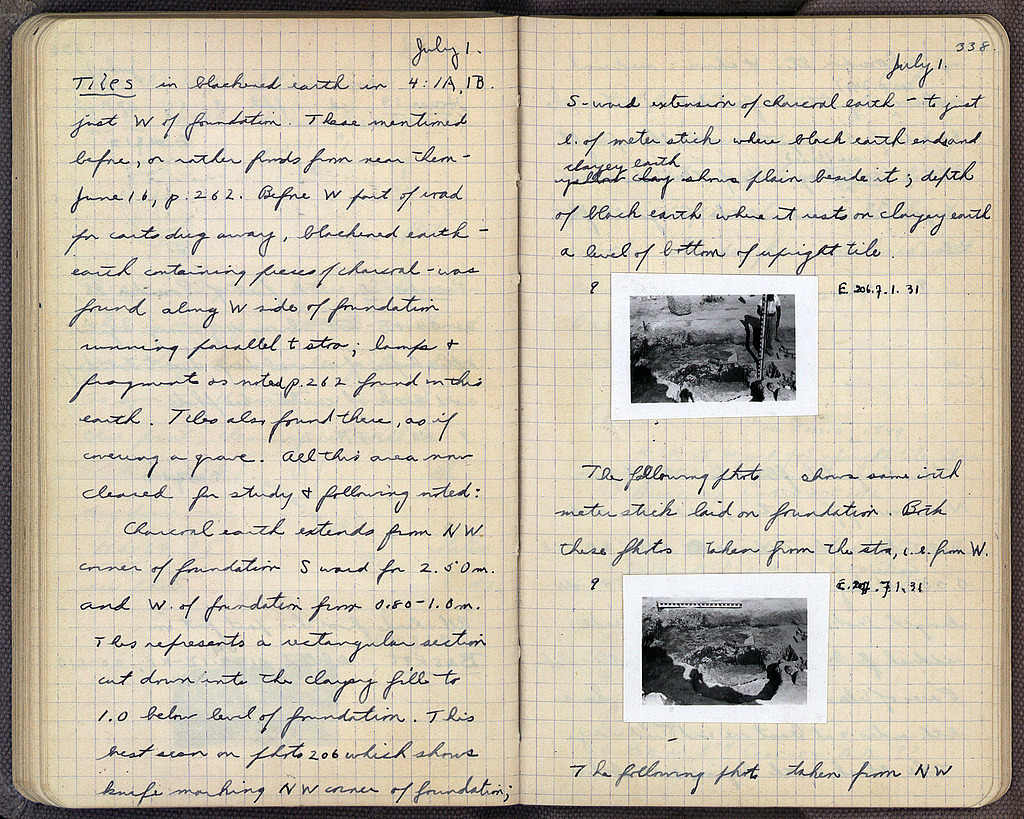 July 1.
Tiles in blackened earth in 4:1A, 1B.
just W of foundation. These mentioned
before, or rather finds from near them -
June 16, p. 262. Before W part of road
for carts dug away, blackened earth -
earth containing pieces of charcoal - was
found along W side of foundation
running parallel to stoa; lamps &
fragments as noted p. 262 found in this
earth. Tiles also found there, as if
covering a grave. All this area now
cleared for study & following noted:
Charcoal earth extends from NW
corner of foundation S ward for 2.50m.
and W. of foundation from 0.80-1.0m.
This represents a rectangular section
cut down into the clayey fill to
1.0 below level of foundation. This
best seen on photo 206 which shows
knife marking NW corner of foundation;
338.
July 1.
S-ward extension of charcoal earth - to just
l. of meter stick where black earth ends and
clayey earth
yellow clay shows plain beside it; depth
of black earth where it rests on clayey earth
a level of bottom of upright tile.
9 E 206.7.1.31
The following photo shows same with
meter stick laid on foundation. Both
these photos taken from the stoa, i.e. from W.
9 E. 207.7.1.31
The following photo taken from NW